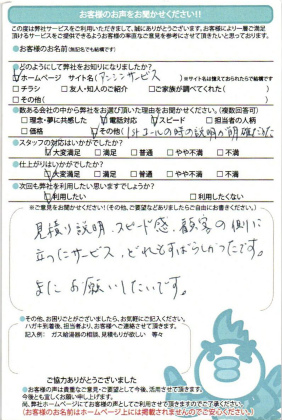 お客様のお声をお聞かせください!!
この度は弊社サービスをご利用いただきまして、誠にありがとうございます。お客様により一層ご満足
頂けるサービスをご提供できるようお客様の率直なご意見を参考にさせて頂きたいと思っております。
●お客様のお名前(無記名でも結構です)
●どのようにして弊社をお知りになりましたか?
☑ホームページ サイト名(アンシンサービス) ※サイト名は憶えておられたらで結構です
□チラシ □友人・知人のご紹介 □ご家族が調べてくれた( )
□その他( )
●数ある会社の中から弊社をお選び頂いた理由をお聞かせください。(複数回答可)
□理念・夢に共感した ☑電話対応 ☑スピード □担当者の人柄
□価格 ☑その他(1stコールの時の説明が明確だった
●スタッフの対応はいかがでしたか?
☑大変満足 □満足 □普通 □やや不満 □不満
●仕上がりはいかがでしたか?
☑大変満足 □満足 □普通 □やや不満 □不満
●次回も弊社を利用したい思いますでしょうか?
☑利用したい □利用したくない
※ご意見をお聞かせください!(その他、ご要望などありましたらご自由にお書きください。)
見積り説明、スピード感、顧客の側に
立ったサービス、どれもすばらしかったです。
また お願いしたいです。
●その他、お困りごとがございましたら、お気軽にご記入ください。
ハガキ到着後、担当者より、お客様へご連絡させて頂きます。
記入例: ガス給湯器の相談、見積もりが欲しい 等々
ご協力ありがとうございました
●お客様の声は貴重なご意見・ご要望として今後、活用させて頂きます。
今後とも宜しくお願い申し上げます。
尚、弊社ホームページにてお客様の声としてご利用させて頂きますのでご了承ください。
(お客様のお名前はホームページ上には掲載されませんのでご安心ください。)